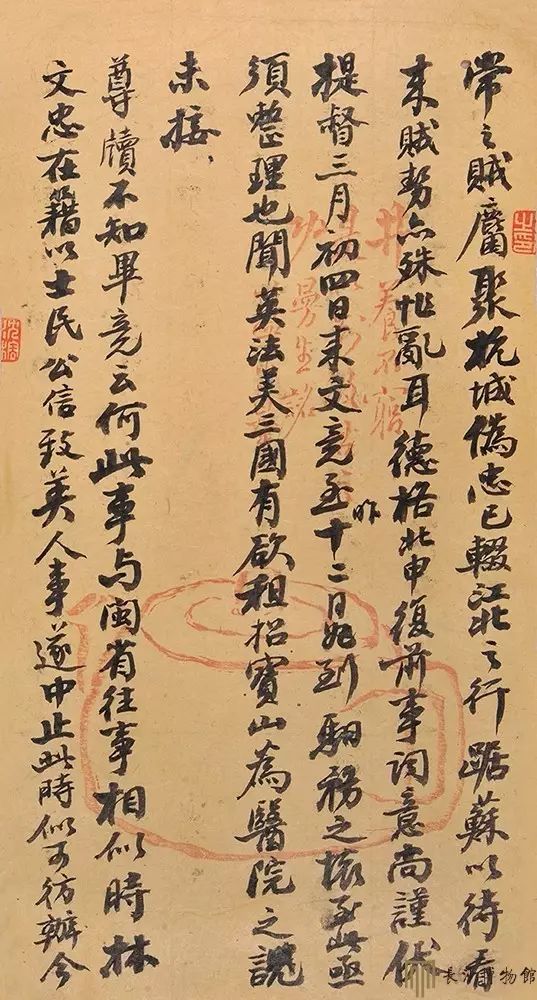 常之賊麕聚杭城偽忠已輟江北之行踞蘇以待看
來賊勢亦殊亂耳德格此申復前事詞意尚謹伏
提督三月初四日來文竟至昨十二日始到馹務之壞至此亟
須整理也聞英法美三國有欲租招寶山為醫院之說
未接、
尊牘不知畢竟云何此事与閩省往事相似時林
文忠在籍以士民公信致英人事遂中止此時似可彷辦今
井養不窮
曼生銘
之印
長沙博物館